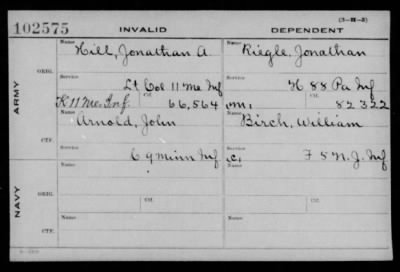 (3—H—3)
102575 INVALID DEPENDENT
Name Hill, Jonathan A. Name Riegle, Jonathan
ORIG. Service Lt Col 11 Me Inf Service H 88 Pa Inf
ARMY K 11 Me. Inf. Ctf. 66,564 Ctf. 82322
Name Arnold, John Name Birch, William
CTF. Service C 9 Minn Inf Service F 5 N. J. Inf
Name Name
NAVY ORIG. Service Ctf. Service Ctf.
Name Name
CTF. Service Service